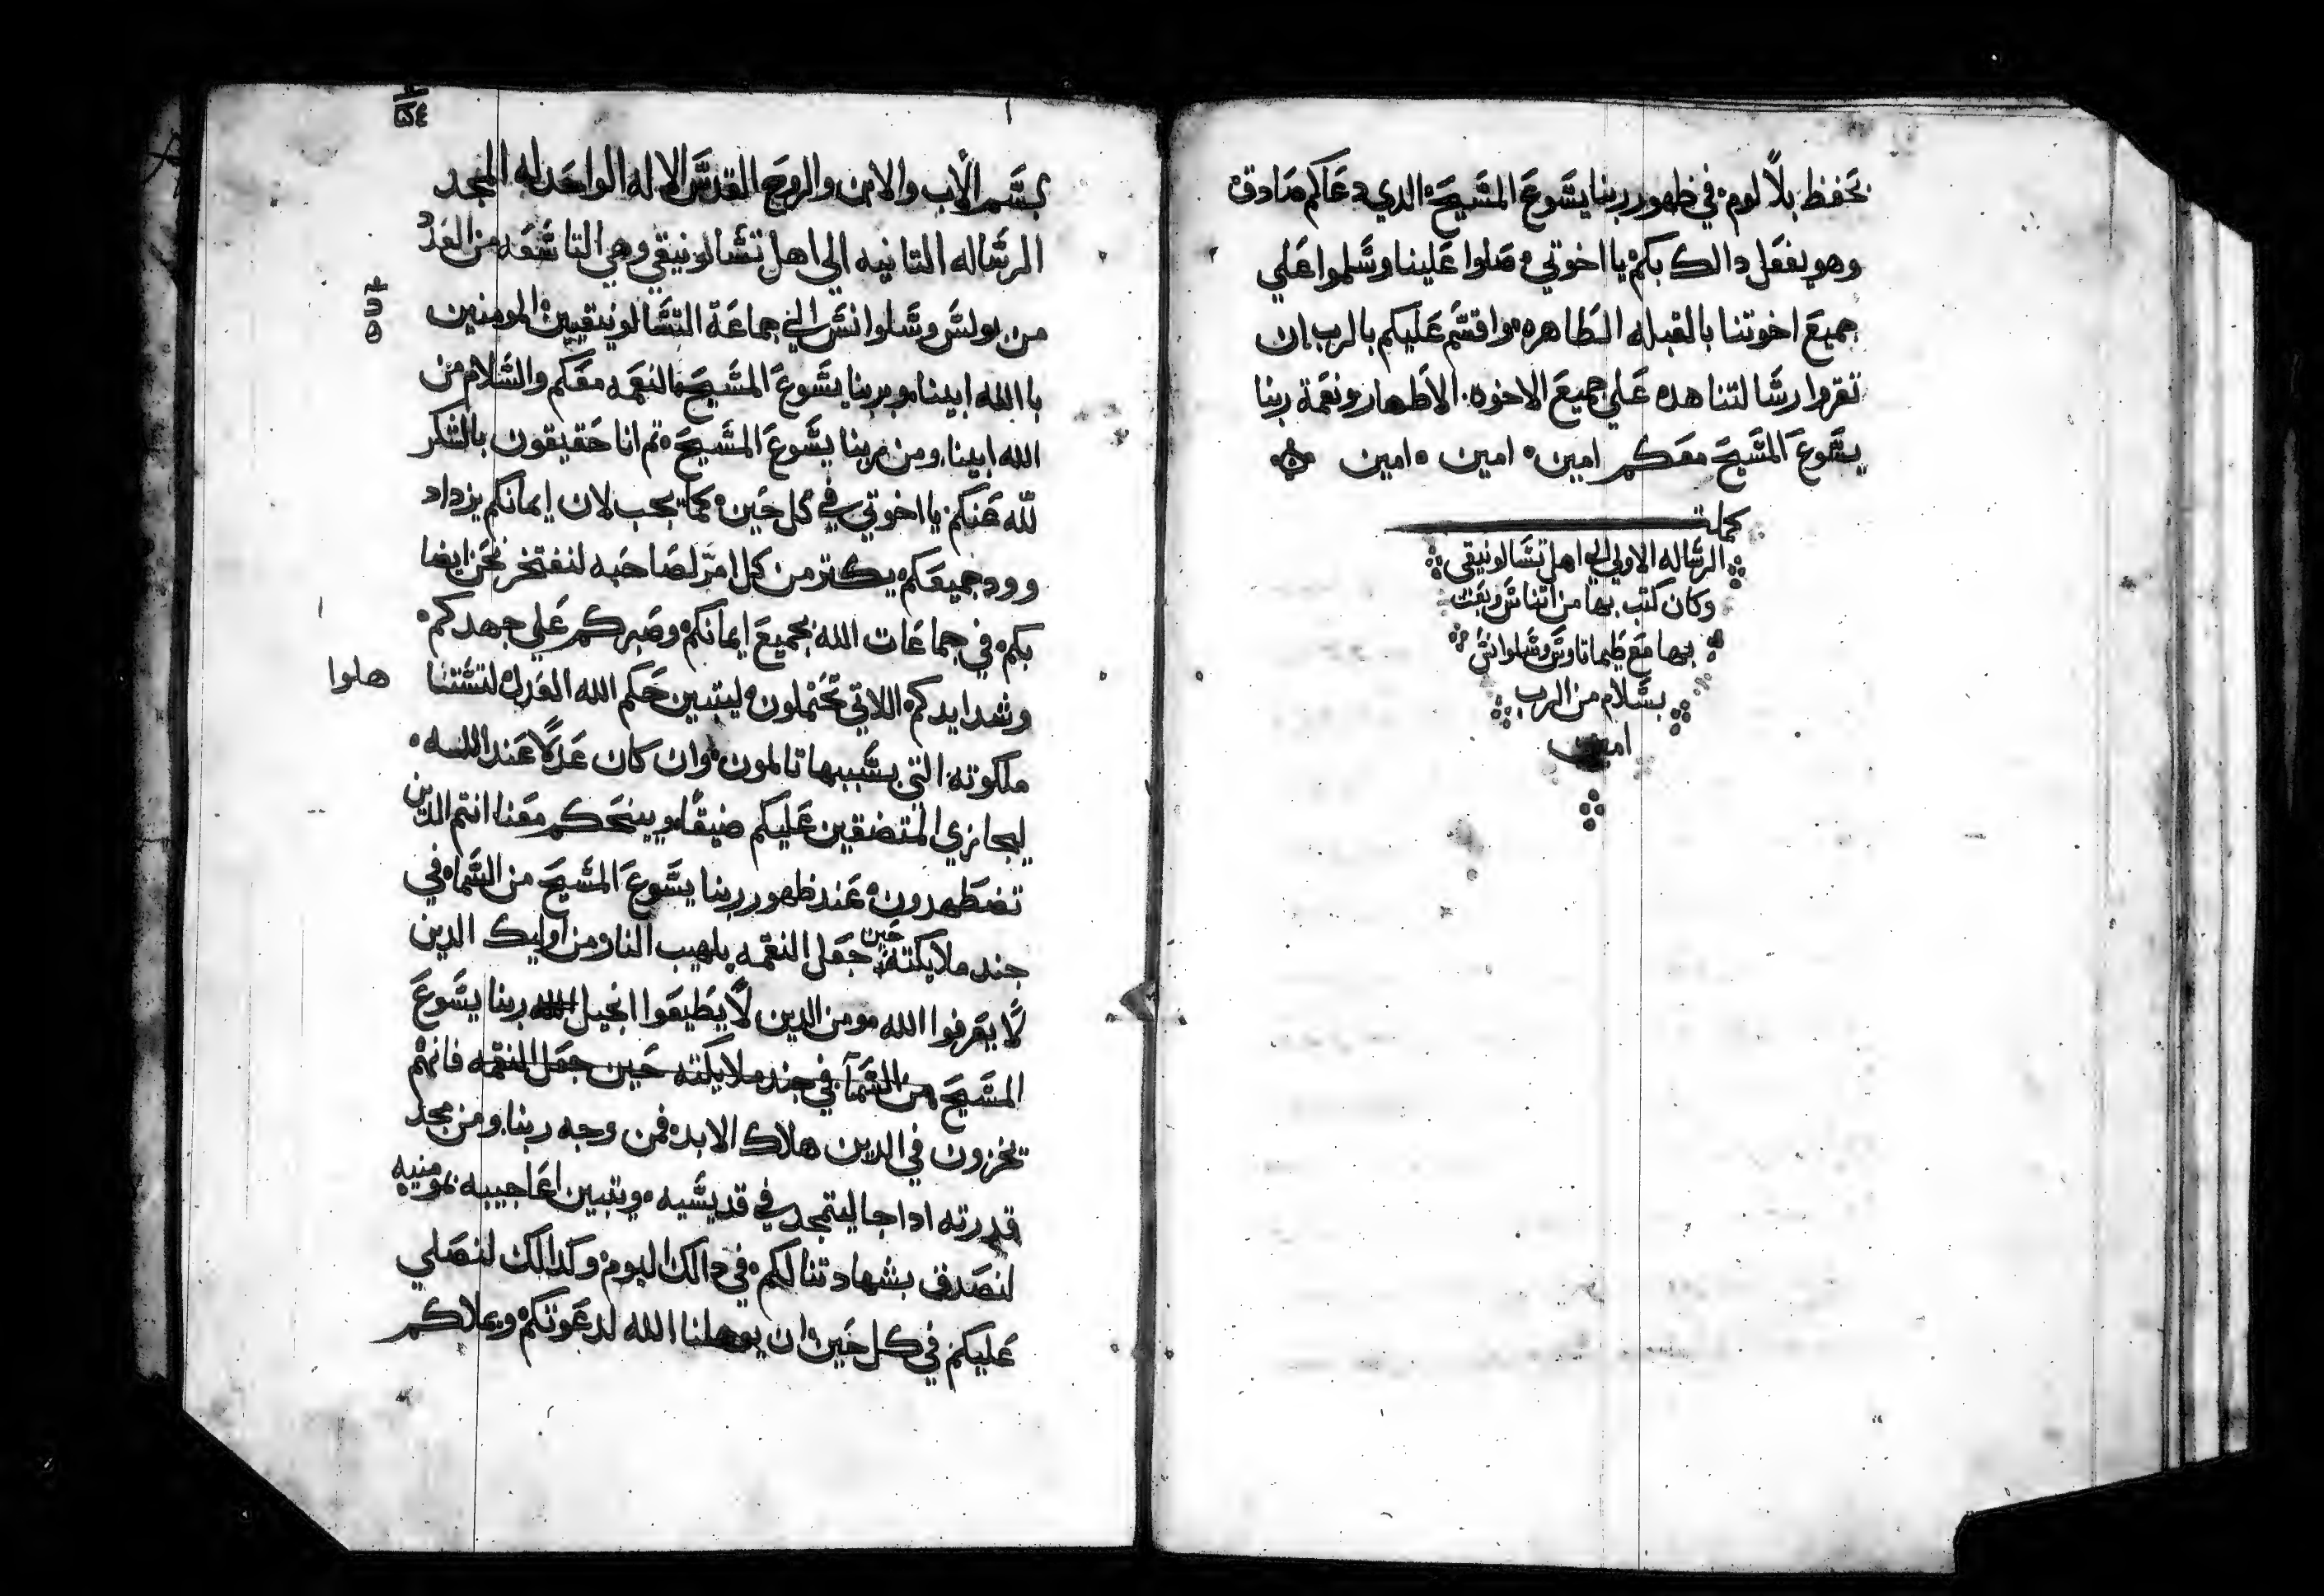 نحفظ بلا لوم في ظهور ربنا يسوع المسيح الدي دعاكم صادق
وهو يفعل دالك بكم يا اخوتي صلوا علينا وسلموا علي
جميع اخوتنا بالقبله الطاهره واقسم عليكم بالرب ان
تقروا رسالتنا هده علي جميع الاخوه الاطهار ونعمة ربنا
يسوع المسيح معكم امين امين امين
كملت
الرساله الاولي الي اهل تسالونيقي
وكان كتب بها من اتناس وبعت
بها مع طيماتاوس وسلوانس
بسلام من الرب
امين
بسم الاب والابن والروح القدس الاله الواحد له المجد
الرساله التانيه الي اهل تسالونيقي وهي التاسعه من العدد
من بولس وسلوانس الي جماعة التسالونيقيين المومنين
باالله ابينا وبربنا يسوع المسيح النعمه معكم والسلام من
الله ابينا ومن ربنا يسوع المسيح تم انا حقيقون بالشكر
لله عنكم يا اخوتي في كل حين كما يجب لان ايمانكم يزداد
وود جميعكم يكتر من كل امر لصاحبه لنفتخر نحن ايضا
بكم في جماعات الله بجميع ايمانكم وصبركم علي جهدكم
وشدايدكم اللاتي تحتملون ليتبين حكم الله العدل لتستا
هلوا
ملكوته التي بسببها تالمون وان كان عدلا عند الله
ليجازي المتضقين عليكم ضيقا وينحكم معنا انتم الدين
تضطهدون عند ظهور ربنا يسوع المسيح من السما في
جند ملايكته حين جعل النقمه بلهيب النار ومن اوليك الدين
لا يعرفوا الله ومن الدين لا يطيعوا انجيل الله ربنا يسوع
المسيح من السما في جند ملايكته حين جعل النقمه فانهم
يخزون في الدين هلاك الابد من وجه ربنا ومن مجد
قدرته ادا جا ليتمجد في قديسيه ويتبين اعاجيبه بمومنيه
لنصدق بشهادتنا لكم في دالك اليوم وكدالك لنصلي
عليكم في كل حين ان يوهلنا الله لدعوتكم ويملاكم